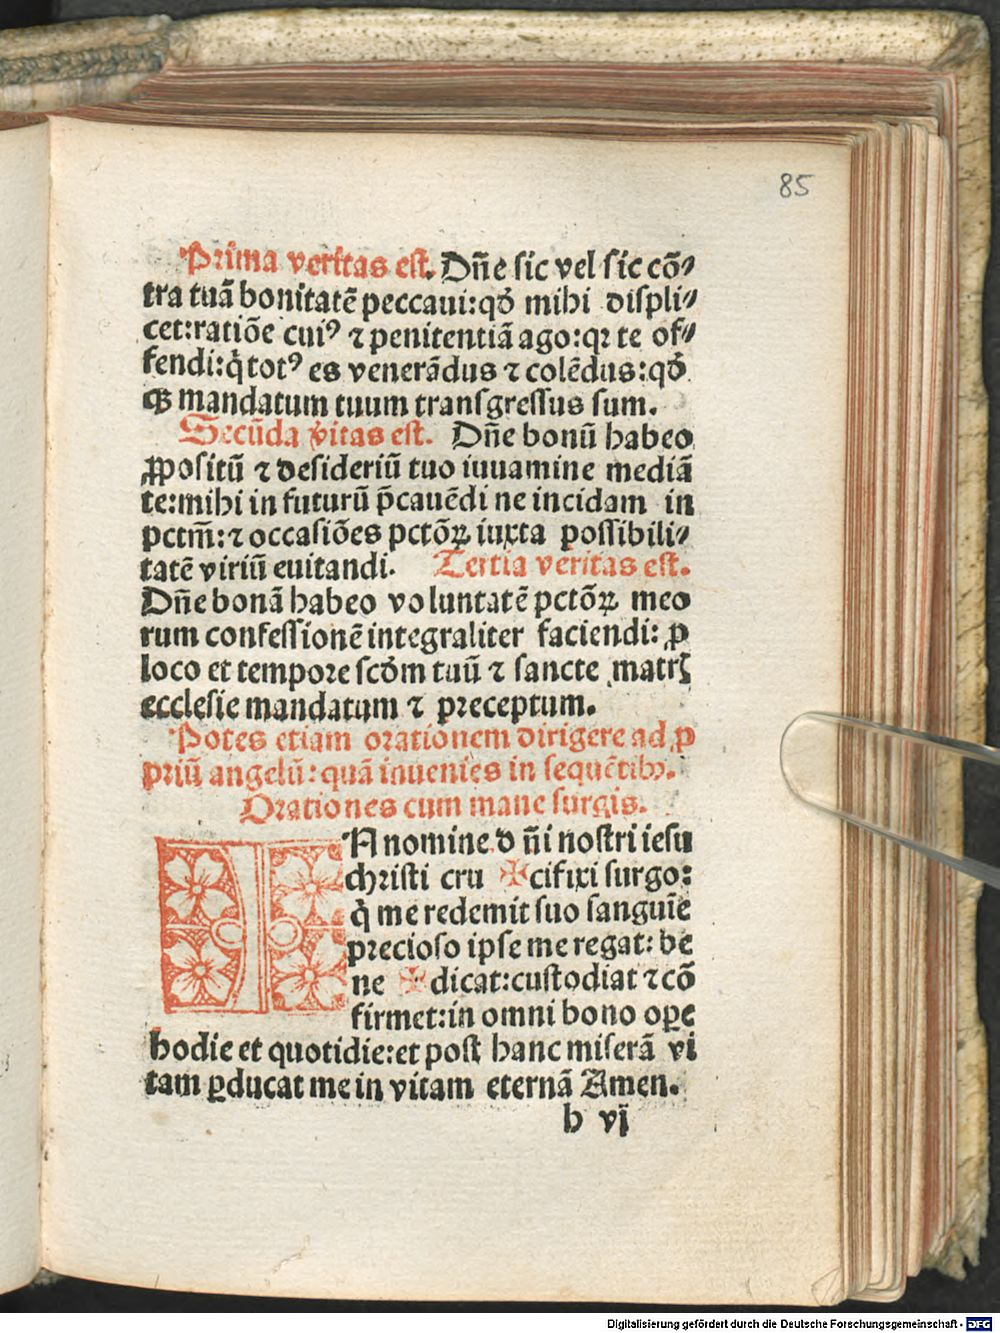 85
Prima veritas est. Dñe sic vel sic cō⸗
tra tuā bonitatē peccaui:qđ mihi displi⸗
cet:ratiōe cuiꝰ ⁊ penitentiā ago:qꝛ te of⸗
fendi:q̇ totꝰ es venerādus ⁊ colēdus:qđ
qꝫ mandatum tuum transgressus sum.
Secūda v̄itas est. Dñe bonū habeo
ꝓpositū ⁊ desideriū tuo iuuamine mediā
te:mihi in futurū p̄cauēdi ne incidam in
pctm̄:⁊ occasiōes pctōꝝ iuxta possibili⸗
tatē viriū euitandi. Tertia veritas est.
Dñe bonā habeo voluntatē pctōꝝ meo
rum confessionē integraliter faciendi: ꝓ
loco et tempore scđm tuū ⁊ sancte matrꝭ
ecclesie mandatum ⁊ preceptum.
Potes etiam orationem dirigere ad ꝓ
priū angelū:quā inuenies in sequētibꝫ.
Orationes cum mane surgis.
IN nomine dñi nostri iesu
christi cru ✠ cifixi surgo:
q̇ me redemit suo sanguīe
precioso ipse me regat: be
ne ✠ dicat:custodiat ⁊ cō
firmet:in omni bono oꝑe
hodie et quotidie:et post hanc miserā vi
tam ꝑducat me in vitam eternā Amen.
h vj
Digitalisierung gefördert durch die Deutsche Forschungsgemeinschaft - DFG